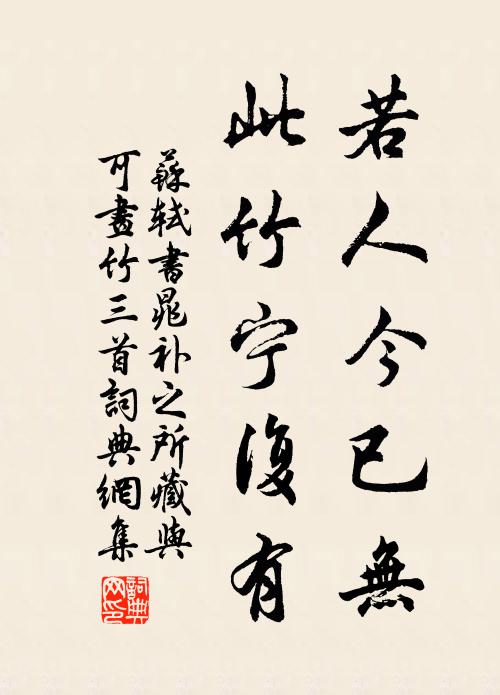 若人今已無
此竹宁復有
蘇軾書晁补之所藏與
可畫竹三首詞典網集
詞典
网印